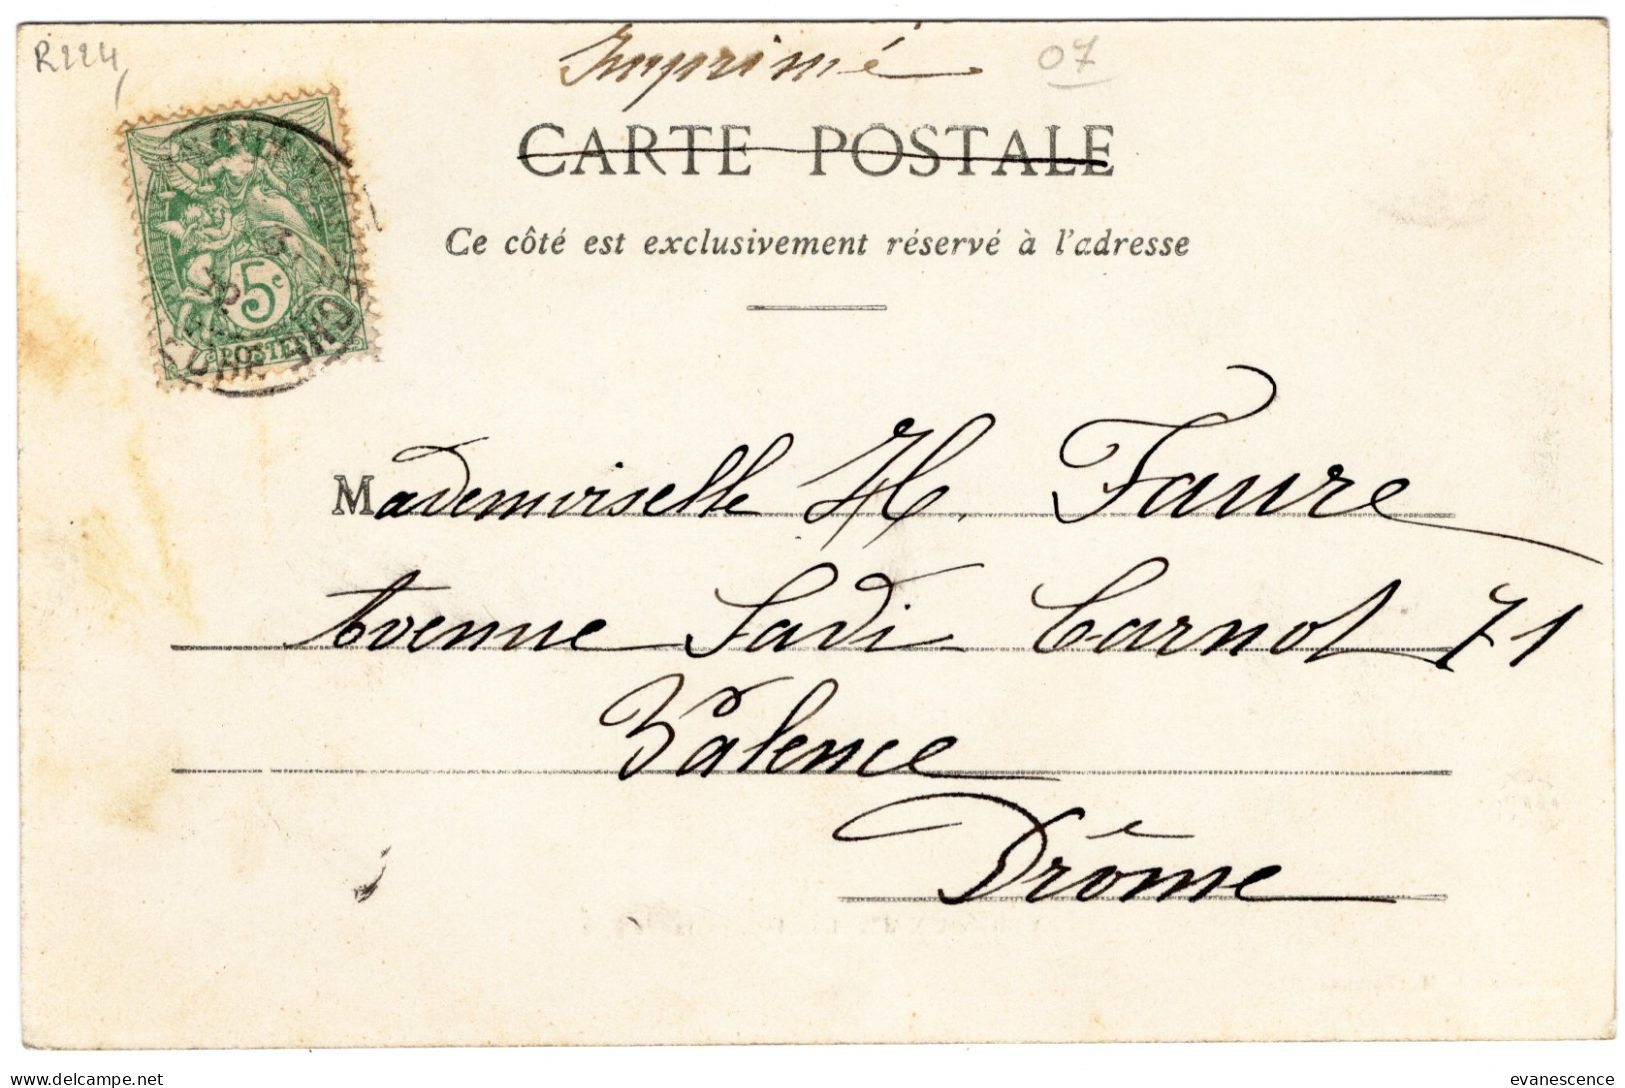 R224
Imprimé
07
CARTE POSTALE
Ce côté est exclusivement réservé à l'adresse
5c
POSTES
Mademoiselle H. Faure
Avenue Sadi Carnot 71
Valence
Drôme
delcampe.net
evanescence